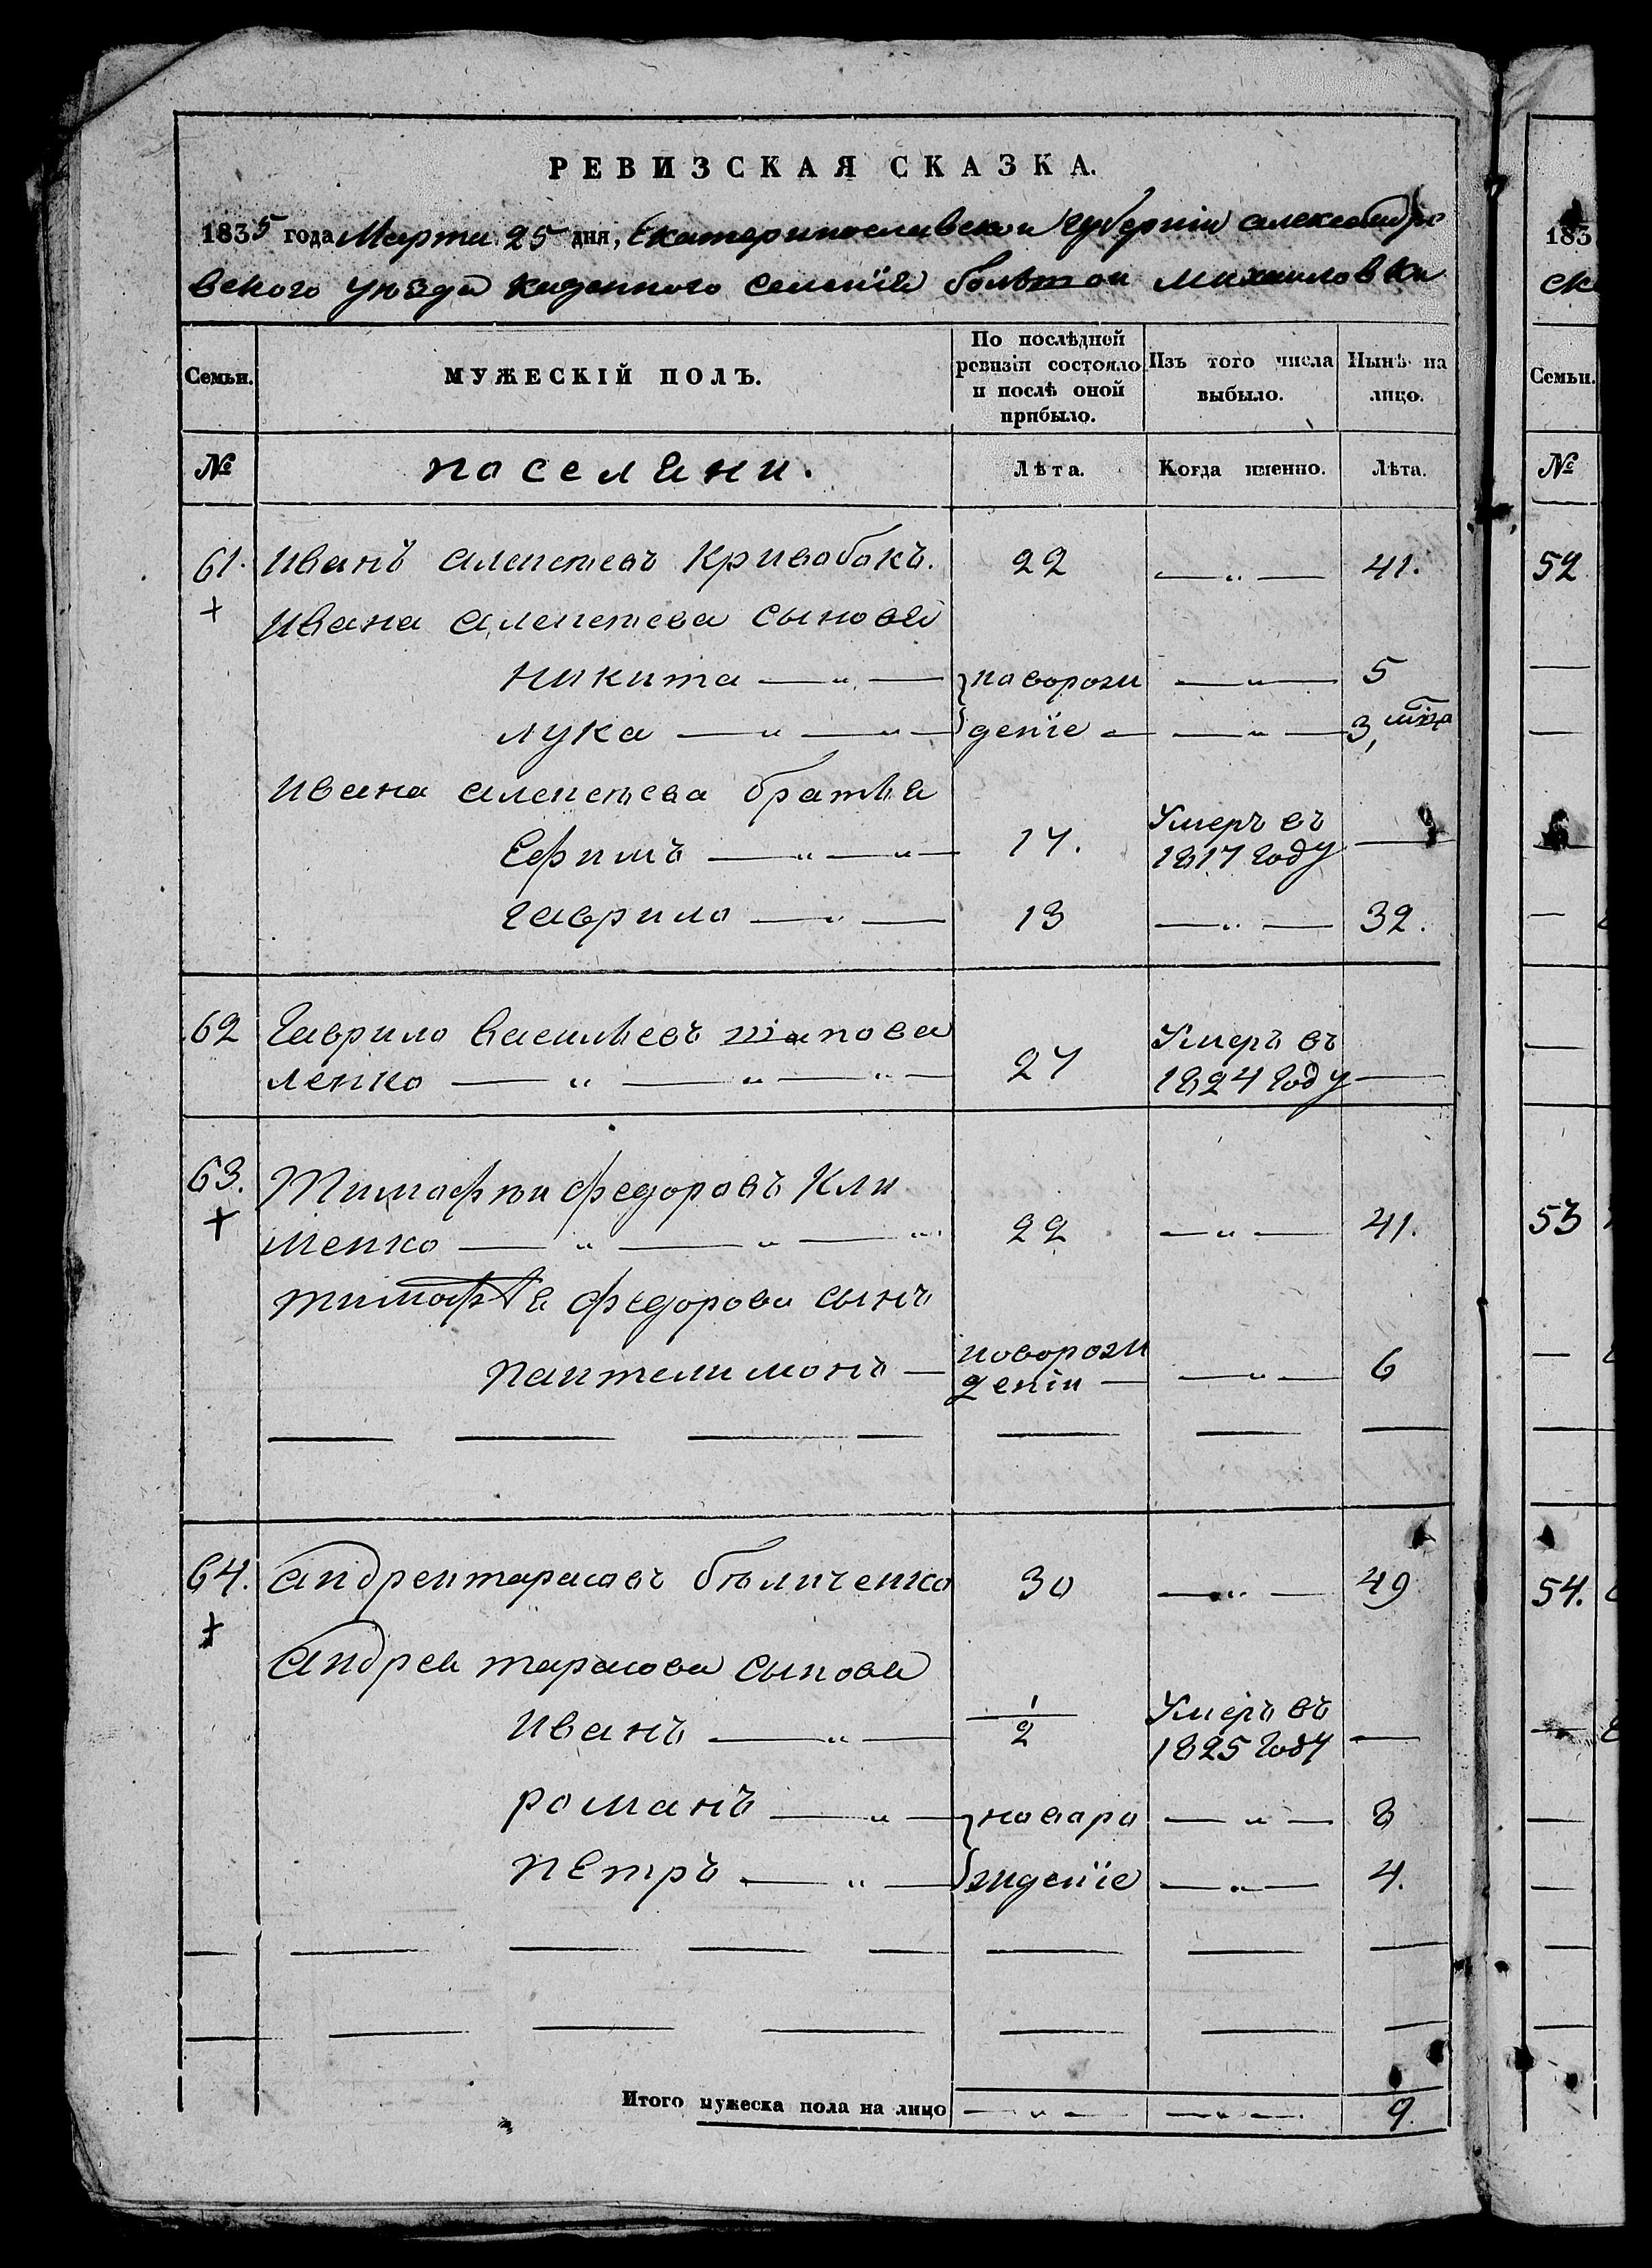 РЕВИЗСКАЯ СКАЗКА.
1835 года Марта 25 дня, Екатеринославской Губерніи александро
вского уѣзда казенного селенія большой михаиловки
Семьи. МУЖЕСКІЙ ПОЛЪ. По послѣдней ревизіи состояло и послѣ оной прибыло. Изъ того числа выбыло. Нынѣ на лицо.
№ поселяни. Лѣта. Когда именно. Лѣта.
61. иванъ алексеевъ кривобокъ. 22 —„— 41.
ивана алексеева сыновя
никита —„— новорож —„— 5
лука —„—„— деніе — —„— 3,
ивана алексеева братья
Ефимъ —„—„— 14. Умеръ въ 1817 Году —
гаврило —„— 13 —„— 32.
62 Гаврило васильевъ шапова
ленко —„—„—„— 24 Умеръ въ 1824 Году —
63. Тимофѣи федоровъ Кли
менко —„—„—„ 22 —„— 41.
тимофѣя федорова сынъ
пантелимонъ — новорож деніи — —„— 6
64. андреи тарасовъ бѣличенко 30 —„— 49
андрея тарасова сыновя
иванъ —„— 1/2 Умеръ въ 1825 Году —
романъ —„— новоро —„— 8
пЕтръ —„— жденіе —„— 4.
Итого мужеска пола на лицо —„— —„— 9.
183
ск
Семьи.
№
52
53
54.